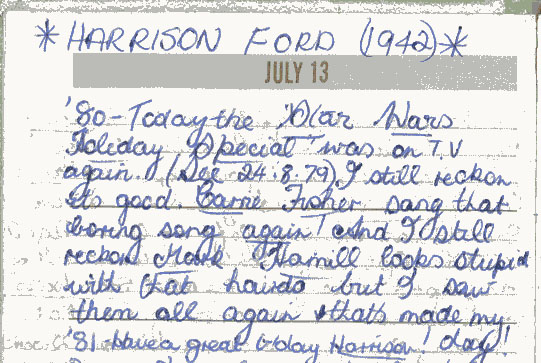 *HARRISON FORD (1942)*
JULY 13
'80 - Today the "Star Wars
Holiday Special" was on T.V
again. (See 24.8.79) I still reckon
it's good. Carrie Fisher sang that
boring song again! And I still
reckon Mark Hamill looks stupid
with that hairdo but I saw
them all again & thats made my
day!
'81 - Have a great b-day Harrison!